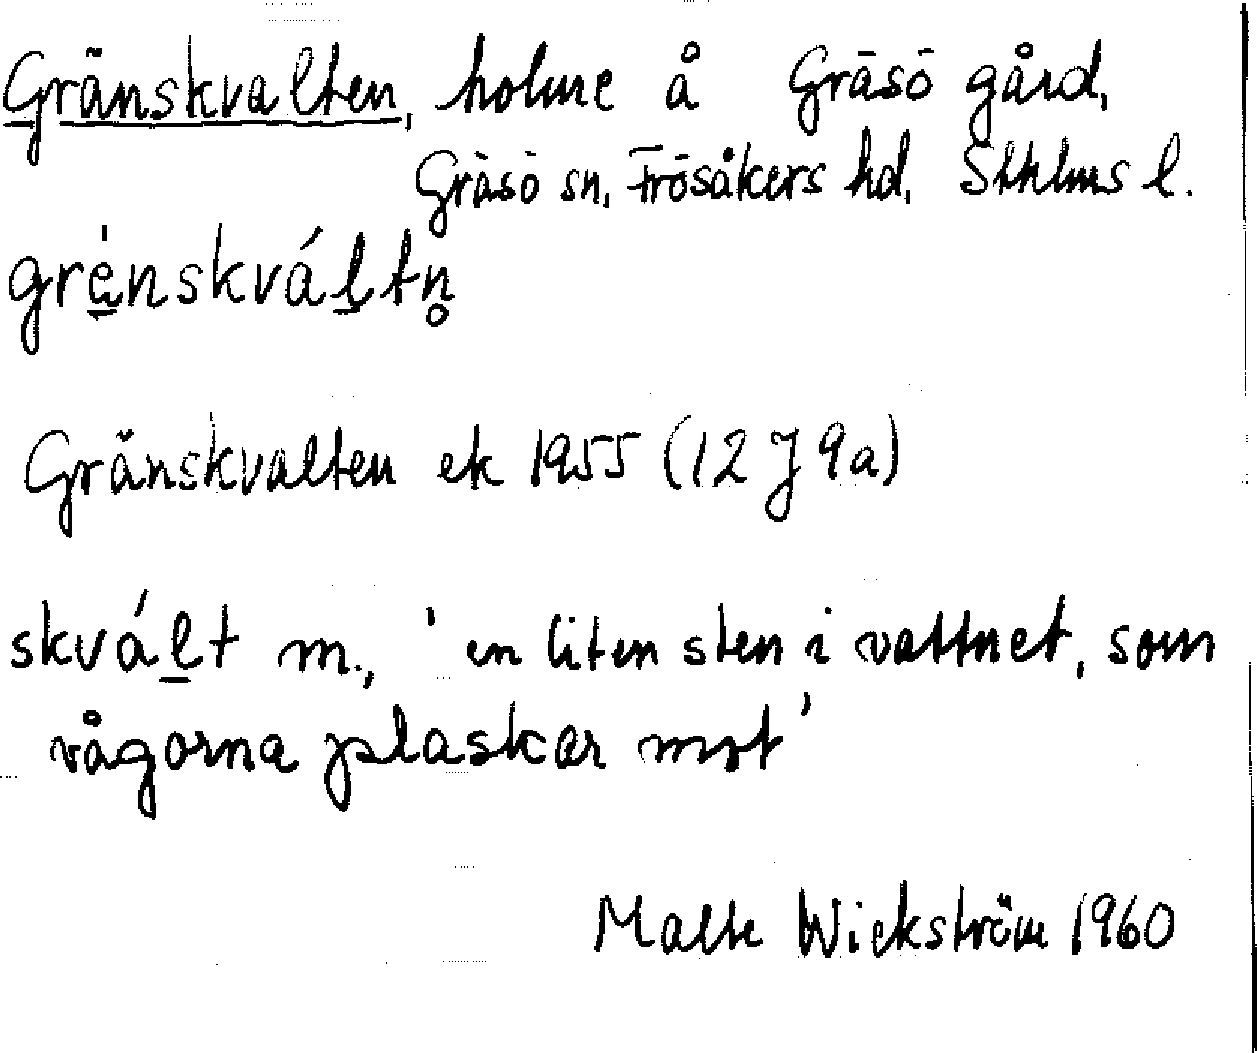 Gränskvalten, holme å Gräsö gård,
Gräsö sn, Frösåkers hd, Sthlms l.
grènskváltn̥
Gränskvalten ek 1955 (12 J 9a)
skvált m., 'en liten sten i vattnet, som
vågorna plaskar mot'
Malte Wickström 1960